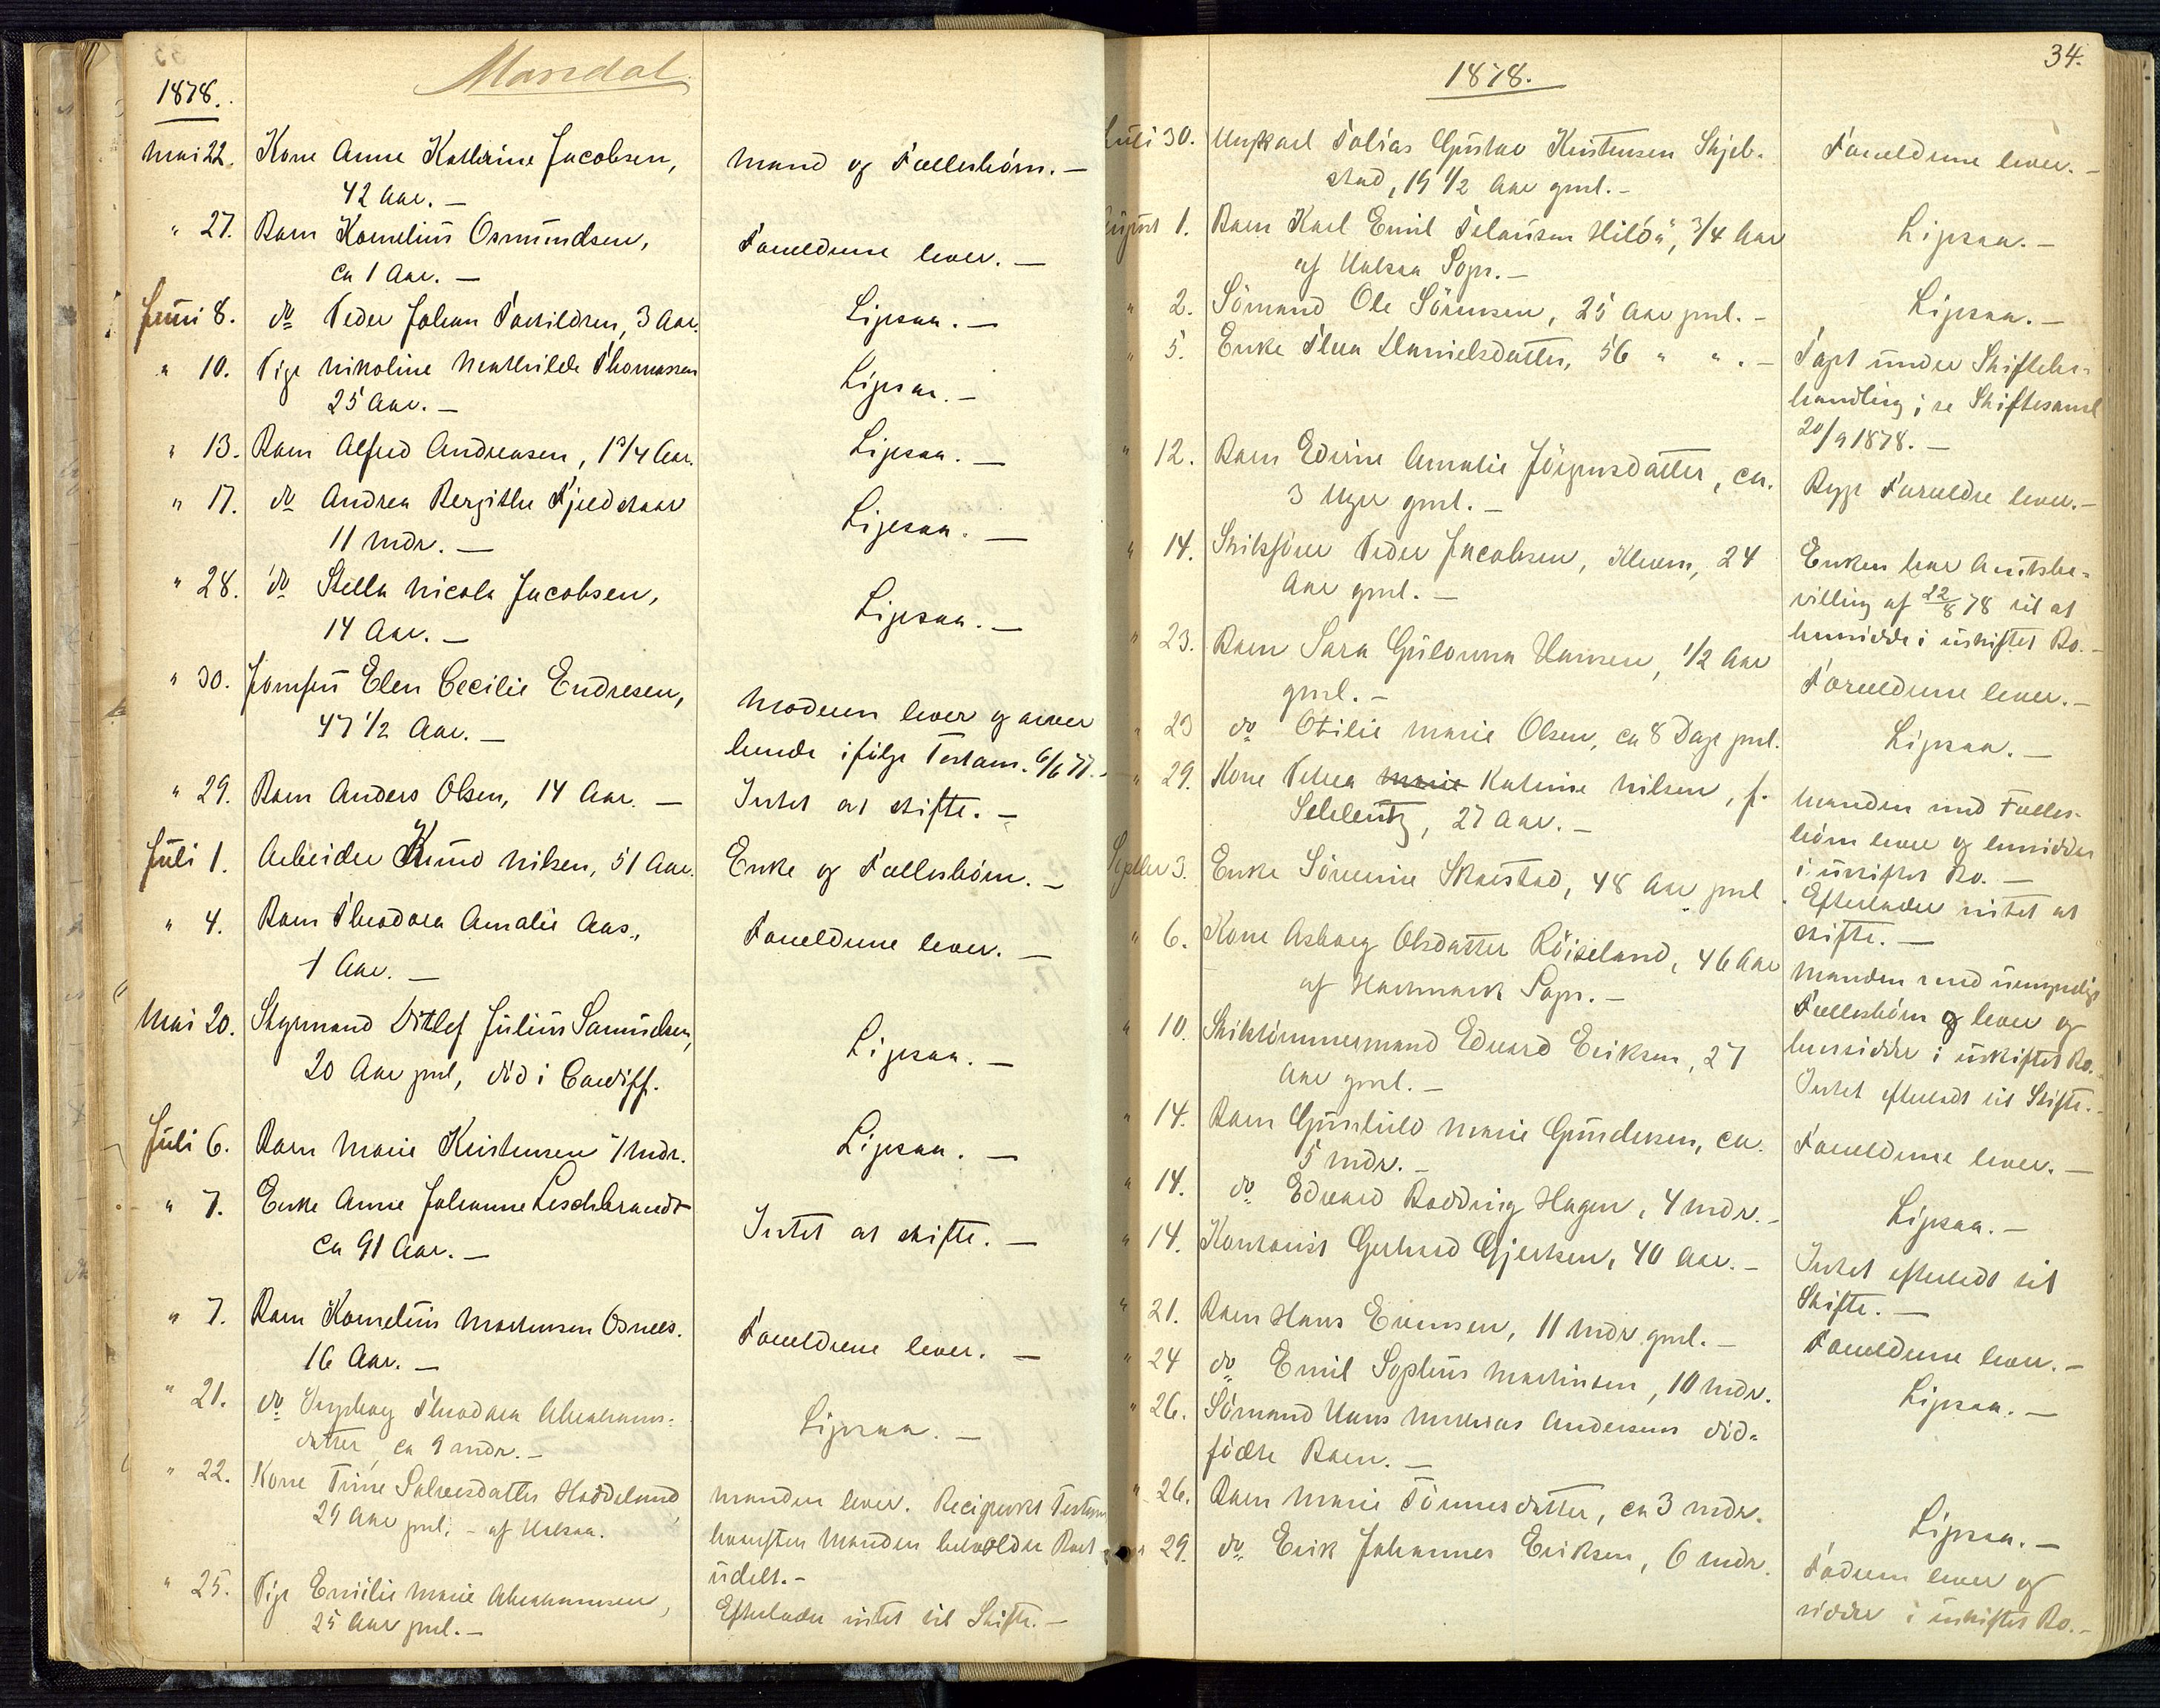 Mandal
1878.
Mai 22. Kone Anne Kathrine Jacobsen, Mand og Fællesbörn. —
42 Aar. —
" 27. Barn Kornelius Osmundsen, Forældrene lever. —
ca 1 Aar. —
Juni 8. do Peder Johan Torkildsen, 3 Aar. Ligesaa. —
" 10. Pige Nikoline Mathilde Thomassen Ligesaa. —
25 Aar. —
" 13. Barn Alfred Andreasen, 1 3/4 Aar. Ligesaa. —
" 17. do Andrea Bergithe Fjeldskaar Ligesaa. —
11 Mdr. —
" 28. do Stella Nicola Jacobsen, Ligesaa. —
14 Aar. —
" 30. Jomfru Elen Cecilie Endresen, Moderen lever og arver
47 1/2 Aar. — hende ifølge Testam. 6/6 77. —
" 29. Barn Anders Olsen, 14 Aar. — Intet at skifte. —
Juli 1. Arbeider Knud Nilsen, 51 Aar. Enke og Fællesbörn. —
" 4. Barn Theodora Amalie Aas, Forældrene lever. —
1 Aar. —
Mai 20. Styrmand Ditlef Julius Samuelsen, Ligesaa. —
20 Aar gml, död i Cardiff.
Juli 6. Barn Marie Kristensen 7 Mdr. Ligesaa. —
" 7. Enke Anne Johanne Leschbrandt Intet at skifte. —
ca 91 Aar. —
" 7. Barn Kornelius Mortensen Osnes. Forældrene lever. —
16 Aar. —
" 21. do Ingeborg Theodora Abrahams- Ligesaa. —
datter, ca 9 Mdr. —
" 22. Kone Trine Salvesdatter Haddeland Manden lever. Reciprokt Testam
29 Aar gml. - af Halsaa. hvorefter Manden beholder Boet
udelt. -
" 25. Pige Emilie Marie Abrahamsen, Efterlader intet til Skifte. —
25 Aar gml. —
34.
1878.
Juli 30. Ungkarl Tobias Gustav Kristensen Skjeb- Forældrene lever. -
stad, 19 1/2 Aar gml. -
August 1. Barn Karl Emil 3/4 Aar Ligesaa. —
af Halsaa Sogn. —
" 2. Sömand Ole Sörensen, 25 Aar gml. - Ligesaa. —
" 5. Enke Thea Danielsdatter, 56 " " . — Tagt under Skiftebe-
handling; se Skiftesaml
20/9 1878. —
" 12. Barn Edvine Amalie Jörgensdatter, ca. Begge Forældre lever. -
3 Uger gml. —
" 14. Skibsförer Peder Jacobsen, Kleven, 24 Enken har Amtsbe-
Aar gml. — villing af 22/8 78 til at
hensidde i uskiftet Bo. -
" 23. Barn Sara Gulovna Hansen, 1/2 Aar Forældrene lever. -
gml. -
" 23 do Otilie Marie Olsen, ca 8 Dage gml. Ligesaa. —
" 29. Kone Petrea Marie Katrine Nilsen, f. Manden med Fælles-
27 Aar. - börn lever og hensidder
i uskiftet Bo. —
Septber 3. Enke Sörine Skarstad, 48 Aar gml. Efterlader intet at
skifte. —
" 6. Kone Asborg Olsdatter Röiseland, 46 Aar Manden med umyndige
af Harkmark Sogn. - Fællesbörn lever og
hensidder i uskiftet Bo. -
" 10. Skibstömmermand Edvard Eriksen, 27 Intet efterladt til Skifte. -
Aar gml. —
" 14. Barn Gunhild Marie Gundersen, ca. Forældrene lever. —
5 Mdr. -
" 14. do Edvard Hagen, 4 Mdr. - Ligesaa. —
" 14. Kontorist Gerhard Gjertsen, 40 Aar. - Intet efterladt til
Skifte. —
" 21. Barn Hans Evensen, 11 Mdr. gml. — Forældrene lever. —
" 24 do Emil Sophus Martinsen, 10 Mdr. Ligesaa. —
" 26. Sömand Hans Mathias Andersens död-
födte Barn. —
" 26. Barn Marie Tönnesdatter, ca 3 Mdr. Ligesaa. —
" 29. do Erik Johannes Eriksen, 6 Mdr. Faderen lever og
sidder i uskiftet Bo. -